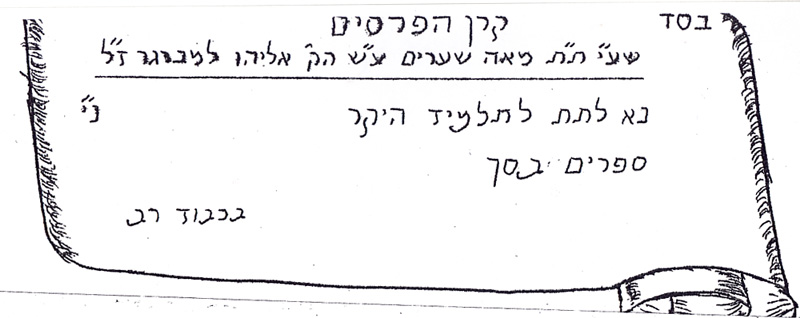 בסד
קרן הפרסים
שע"י ת"ת מאה שערים ע"ש הק' אליהו למברגר ז"ל
נא לתת לתלמיד היקר נ"י
ספרים בסך
בכבוד רב